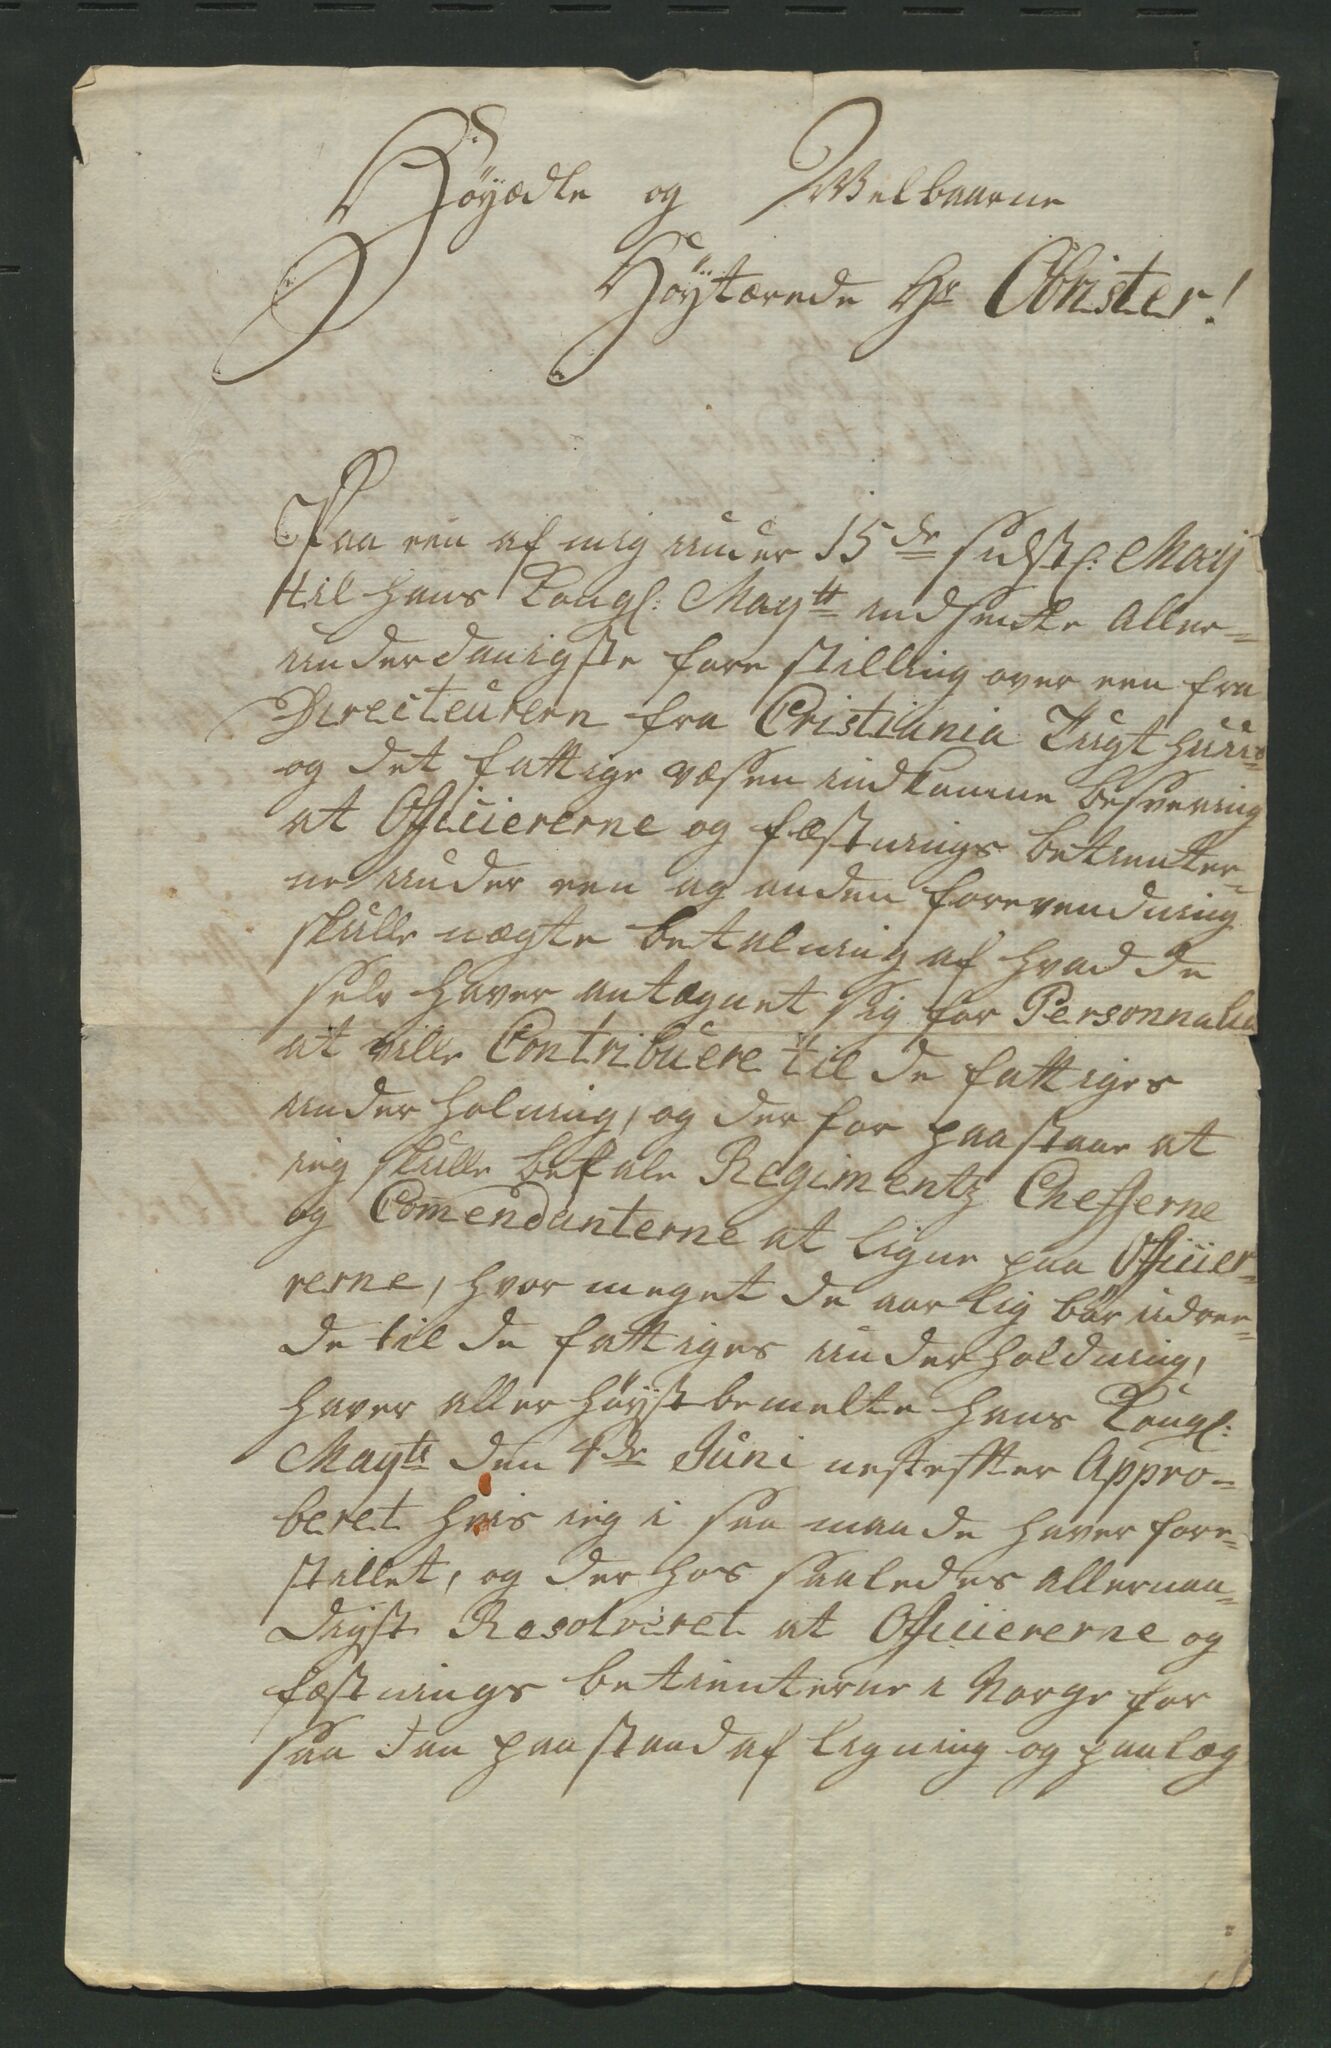 Höyædle og Welbaarne
Höytærede Hr Obrister!
Paa een af mig under 15de sidstl: Maij
til Hans Kongl: Maytt indsendte Aller=
underdanigste forestilling over een fra
Directeurern fra Cristiania Tugthuus
og det fattige væsen indkomne besvering
at Officiererne og fæstnings betienter=
ne under een og anden forevendning
skulle nægte betalning af hvad de
selv haver antegnet sig for Personnalia
at ville Contribuere til de fattiges
underholning, og derfor paastaar at
ieg skulle befale Regimentz Chefferne
og Com̄endanterne at ligne paa Officier=
rerne, hvor meget de aarlig bör udree=
de til de fattiges underholdning,
haver allerhöystbemelte Hans Kongl:
Maytt den 4de Juni nesteffter Appro=
beret hvis ieg i saa maade haver fore=
stillet, og derhos saaledes allernaa=
digst Resolveret at Officiererne og
fæstnings betienterne i Norge for
saadan paastand af ligning og paalæg